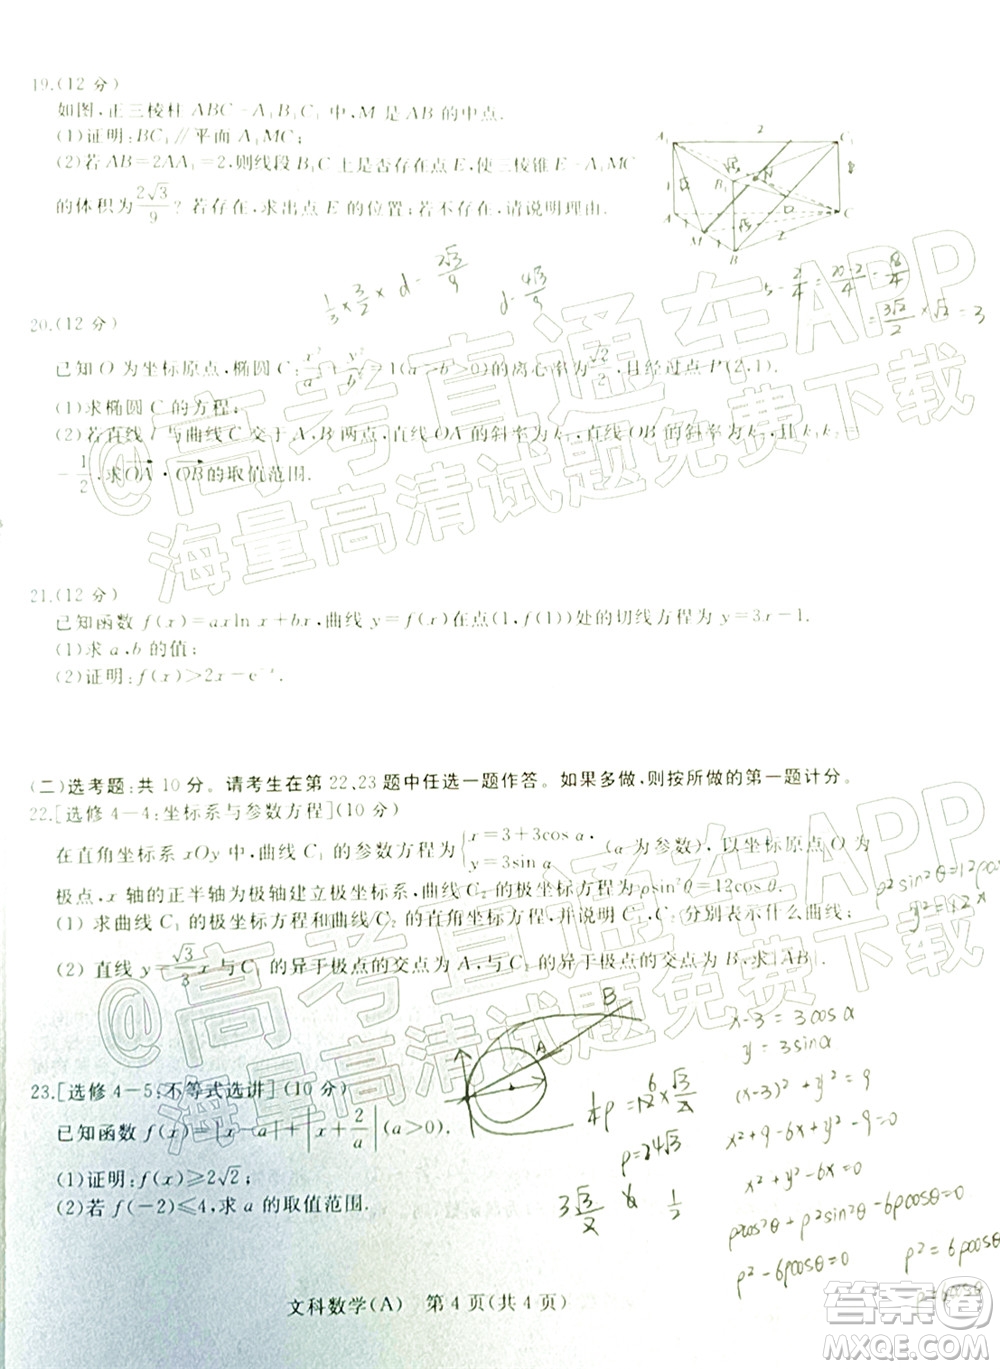 19.(12 分)
如图,正三棱柱 ABC-A₁B₁C₁ 中,M 是 AB 的中点.
(1)证明:BC₁∥平面 A₁MC;
(2)若 AB=2AA₁=2,则线段 B₁C 上是否存在点 E,使三棱锥 E-A₁MC
的体积为 2√3/9?若存在,求出点 E 的位置;若不存在,请说明理由.
A₁ 2 C₁
B₁ N
1
A C
M 1 B 2
1/3 × 3/2 × d = 2√3/9
d = 4√3/9
= 3√2/2 × √2 = 3
20.(12 分)
已知 O 为坐标原点,椭圆 C:x²/a²+y²/b²=1(a>b>0)的离心率为 √2/2,且经过点 P(2,1).
(1)求椭圆 C 的方程;
(2)若直线 l 与曲线 C 交于 A,B 两点,直线 OA 的斜率为 k₁,直线 OB 的斜率为 k₂,且 k₁k₂=
-1/2,求OA·OB的取值范围.
@高考直通车APP
海量高清试题免费下载
21.(12 分)
已知函数 f(x)=axln x+bx,曲线 y=f(x)在点(1,f(1))处的切线方程为 y=3x-1.
(1)求 a,b 的值;
(2)证明:f(x)>2x-e⁻ˣ.
(二)选考题:共 10 分。请考生在第 22,23 题中任选一题作答。如果多做,则按所做的第一题计分。
22.[选修 4-4:坐标系与参数方程](10 分)
在直角坐标系 xOy 中,曲线 C₁ 的参数方程为{x=3+3cos α, y=3sin α (α 为参数),以坐标原点 O 为
极点,x 轴的正半轴为极轴建立极坐标系,曲线 C₂ 的极坐标方程为 ρsin²θ=12cosθ.
(1) 求曲线 C₁ 的极坐标方程和曲线 C₂ 的直角坐标方程,并说明 C₁,C₂ 分别表示什么曲线;
(2) 直线 y=√3/3 x 与 C₁ 的异于极点的交点为 A,与 C₂ 的异于极点的交点为 B,求|AB|.
ρ²sin²θ=12ρcos
y²=12x
@高考直通车APP
海量高清试题免费下载
A B
1/4ρ=12×√3/2
ρ=24√3
x-3=3cosα
y=3sinα
(x-3)²+y²=9
x²+9-6x+y²-9=0
x²+y²-6x=0
ρ²cos²θ+ρ²sin²θ-6ρcosθ=0
ρ²-6ρcosθ=0
ρ²=6ρcosθ
ρ=6cosθ
23.[选修 4-5:不等式选讲](10 分)
已知函数 f(x)=|x-a|+|x+2/a|(a>0).
(1)证明:f(x)≥2√2;
(2)若 f(-2)≤4,求 a 的取值范围.
文科数学(A) 第 4 页(共 4 页)
答案圈
MXQE.COM